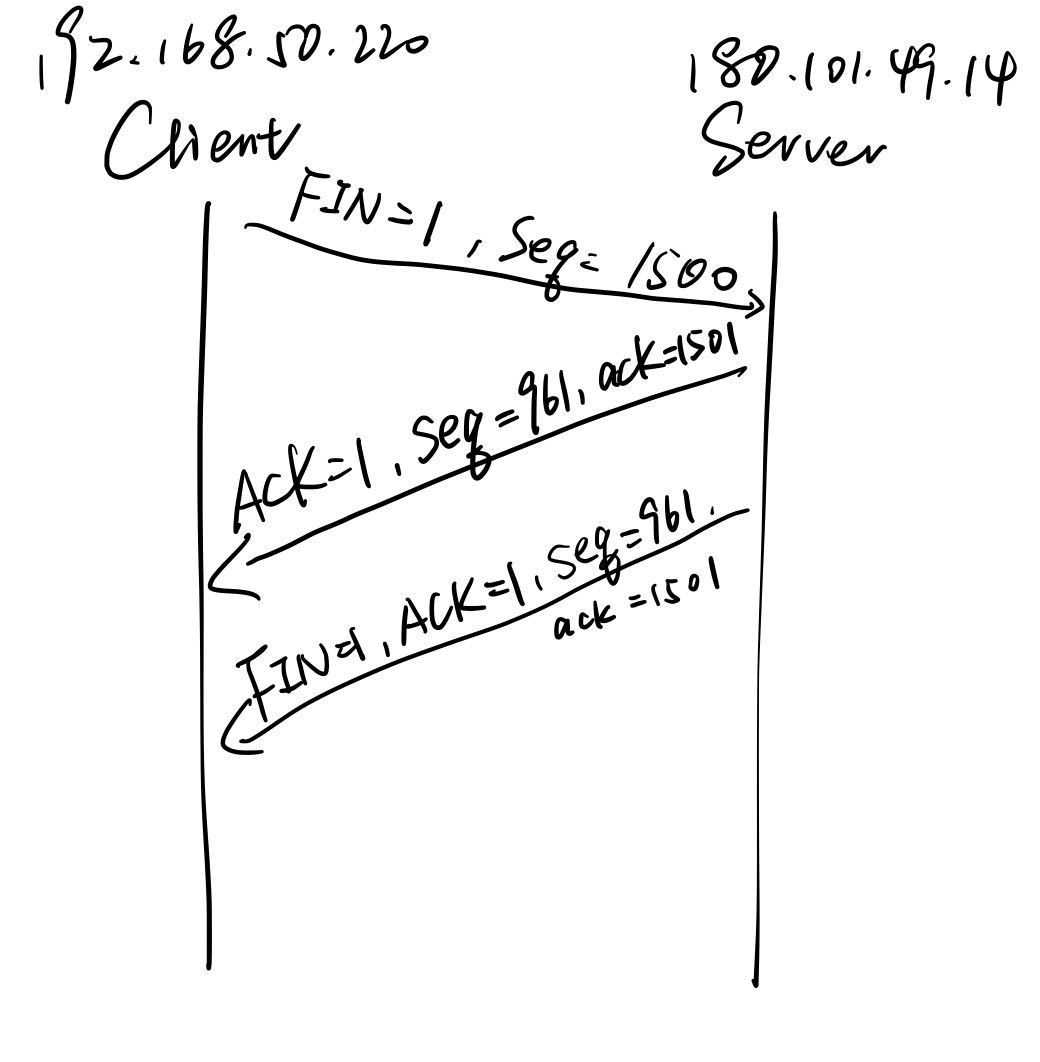 192.168.50.220
180.101.49.14
Client
Server
FIN=1, Seq=1500
ACK=1, Seq=961, ack=1501
FIN=1, ACK=1, Seq=961,
ack=1501